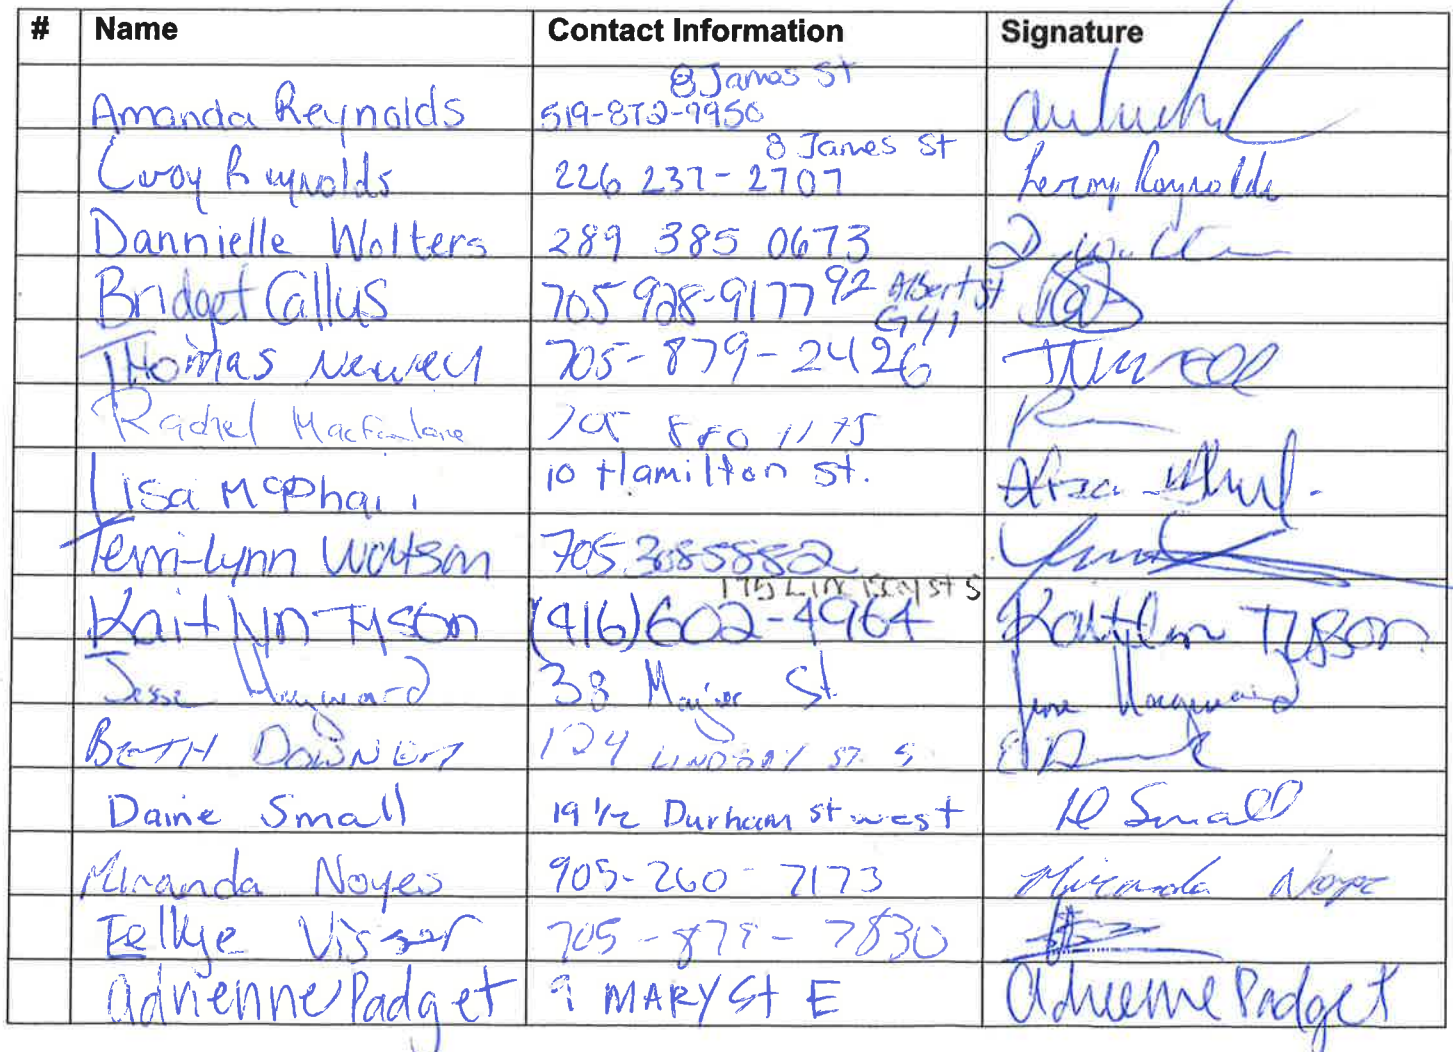 # Name Contact Information Signature
8 James St
Amanda Reynolds 519-872-9950
8 James St
Leroy Reynolds 226 237-2707 Leroy Reynolds
Dannielle Wolters 289 385 0673 D Wolters
Bridget Callus 705 928-9177 92 Albert St
G41
Thomas Newell 705-879-2426 TNewell
Rachel MacFarlane 705 880 1175
Lisa McPhail 10 Hamilton St.
Terri-Lynn Watson 705 3085882
175 Lindsay St S
Kaitlyn Tyson (416)602-4964 Kaitlyn Tyson
Jesse Hayward 38 Major St Jesse Hayward
BETH DOWNEY 124 LINDSAY ST. S.
Daine Small 19 1/2 Durham St west D Small
Miranda Noyes 905-260-7173 Miranda Noyes
Visser 705-878-7830
Adrienne Padget 9 MARY St E Adrienne Padget